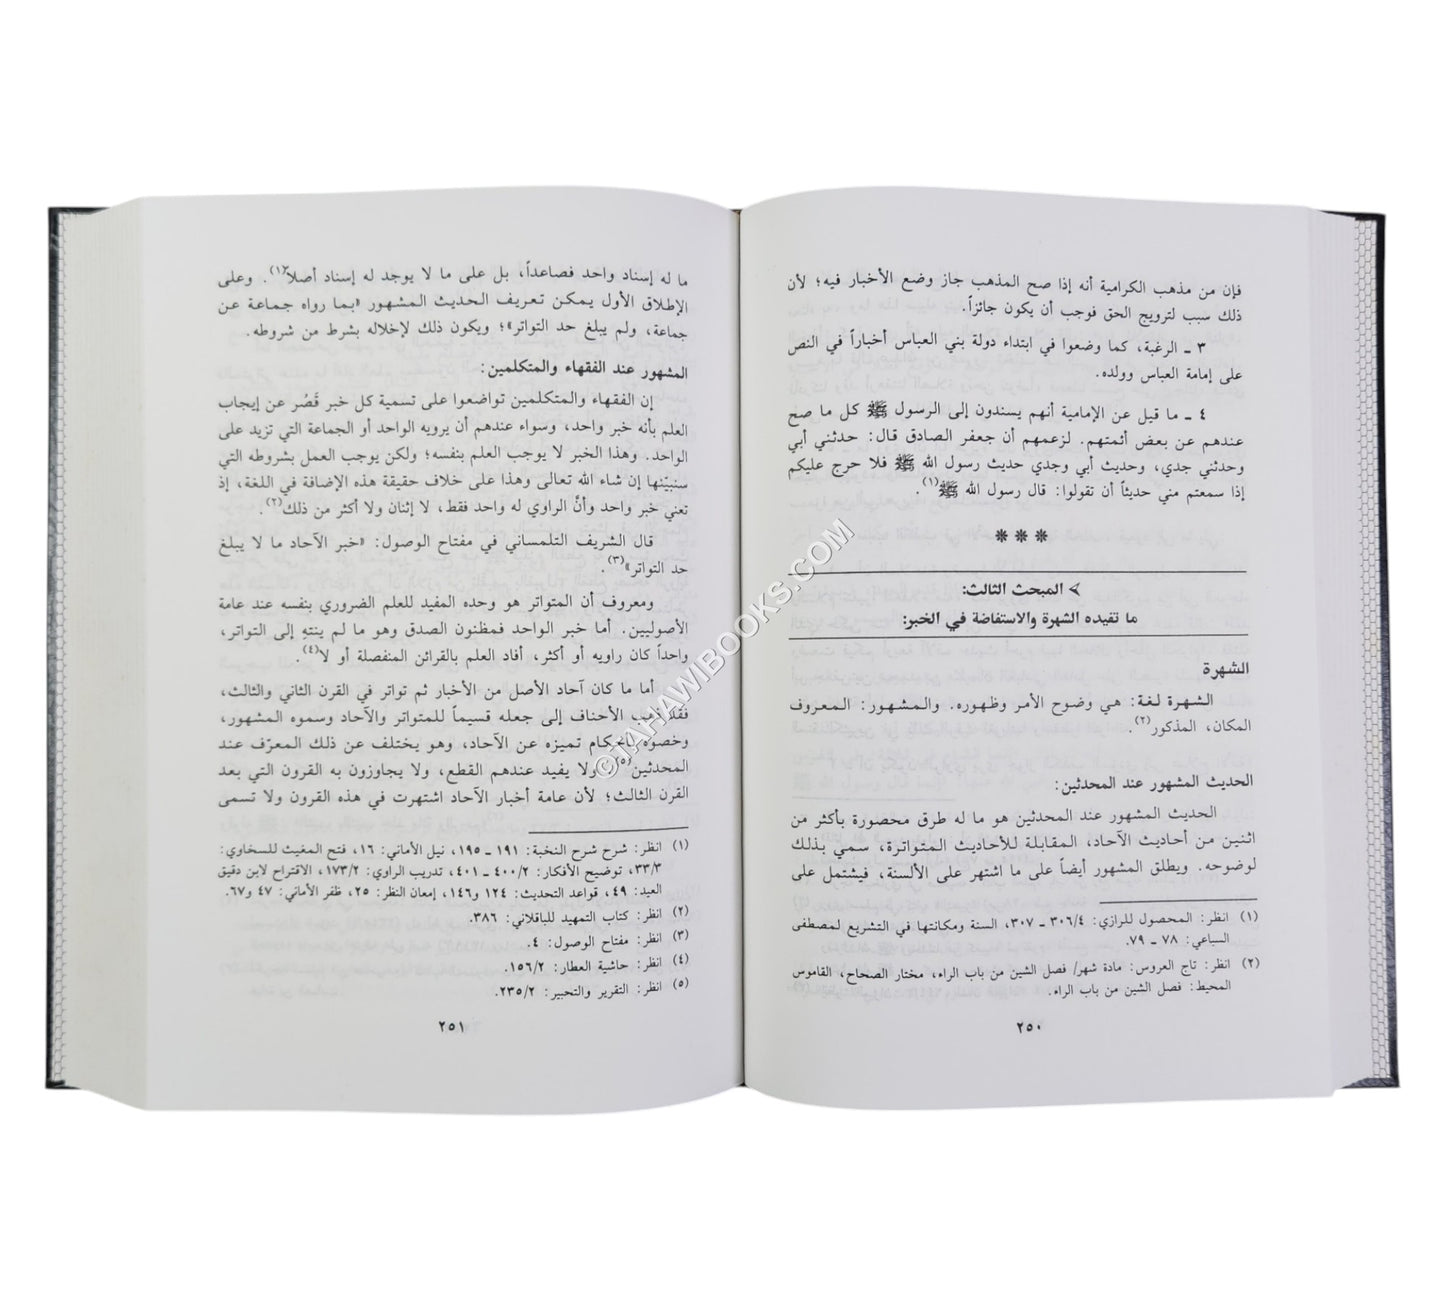 فإن من مذهب الكرامية أنه إذا صح المذهب جاز وضع الأخبار فيه؛ لأن
ذلك سبب لترويج الحق فوجب أن يكون جائزاً.
٣ ـ الرغبة، كما وضعوا في ابتداء دولة بني العباس أخباراً في النص
على إمامة العباس وولده.
٤ ـ ما قيل عن الإمامية أنهم يسندون إلى الرسول ﷺ كل ما صح
عندهم عن بعض أئمتهم. لزعمهم أن جعفر الصادق قال: حدثني أبي
وحدثني جدي، وحديث أبي وجدي حديث رسول الله ﷺ فلا حرج عليكم
إذا سمعتم مني حديثاً أن تقولوا: قال رسول الله ﷺ(١).
* * *
المبحث الثالث:
ما تفيده الشهرة والاستفاضة في الخبر:
الشهرة
الشهرة لغة: هي وضوح الأمر وظهوره. والمشهور: المعروف
المكان، المذكور(٢).
الحديث المشهور عند المحدثين:
الحديث المشهور عند المحدثين هو ما له طرق محصورة بأكثر من
اثنين من أحاديث الآحاد، المقابلة للأحاديث المتواترة، سمي بذلك
لوضوحه. ويطلق المشهور أيضاً على ما اشتهر على الألسنة، فيشتمل على
(١) انظر: المحصول للرازي: ٣٠٦/٤ ـ ٣٠٧، السنة ومكانتها في التشريع لمصطفى
السباعي: ٧٨ ـ ٧٩.
(٢) انظر: تاج العروس: مادة شهر/ فصل الشين من باب الراء، مختار الصحاح، القاموس
المحيط: فصل الشين من باب الراء.
٢٥٠
ما له إسناد واحد فصاعداً، بل على ما لا يوجد له إسناد أصلاً(١). وعلى
الإطلاق الأول يمكن تعريف الحديث المشهور «بما رواه جماعة عن
جماعة، ولم يبلغ حد التواتر»؛ ويكون ذلك لإخلاله بشرط من شروطه.
المشهور عند الفقهاء والمتكلمين:
إن الفقهاء والمتكلمين تواضعوا على تسمية كل خبر قَصُر عن إيجاب
العلم بأنه خبر واحد، وسواء عندهم أن يرويه الواحد أو الجماعة التي تزيد على
الواحد. وهذا الخبر لا يوجب العلم بنفسه؛ ولكن يوجب العمل بشروطه التي
سنبيّنها إن شاء الله تعالى وهذا على خلاف حقيقة هذه الإضافة في اللغة، إذ
تعني خبر واحد وأنَّ الراوي له واحد فقط، لا إثنان ولا أكثر من ذلك(٢).
قال الشريف التلمساني في مفتاح الوصول: «خبر الآحاد ما لا يبلغ
حد التواتر»(٣).
ومعروف أن المتواتر هو وحده المفيد للعلم الضروري بنفسه عند عامة
الأصوليين. أما خبر الواحد فمظنون الصدق وهو ما لم ينتهِ إلى التواتر،
واحداً كان راويه أو أكثر، أفاد العلم بالقرائن المنفصلة أو لا(٤).
أما ما كان آحاد الأصل من الأخبار ثم تواتر في القرن الثاني والثالث،
فقد ذهب الأحناف إلى جعله قسيماً للمتواتر والآحاد وسموه المشهور،
وخصوه بأحكام تميزه عن الآحاد، وهو يختلف عن ذلك المعرّف عند
المحدثين(٥) ولا يفيد عندهم القطع، ولا يجاوزون به القرون التي بعد
القرن الثالث؛ لأن عامة أخبار الآحاد اشتهرت في هذه القرون ولا تسمى
(١) انظر: شرح شرح النخبة: ١٩١ ـ ١٩٥، نيل الأماني: ١٦، فتح المغيث للسخاوي:
٣٣/٣، توضيح الأفكار: ٤٠٠/٢ ـ ٤٠١، تدريب الراوي: ١٧٣/٢، الاقتراح لابن دقيق
العيد: ٤٩، قواعد التحديث: ١٢٤ و١٤٦، إمعان النظر: ٢٥، ظفر الأماني: ٤٧ و٦٧.
(٢) انظر: كتاب التمهيد للباقلاني: ٣٨٦.
(٣) انظر: مفتاح الوصول: ٤.
(٤) انظر: حاشية العطار: ١٥٦/٢.
(٥) انظر: التقرير والتحبير: ٢٣٥/٢.
٢٥١
©TAHAWIBOOKS.COM